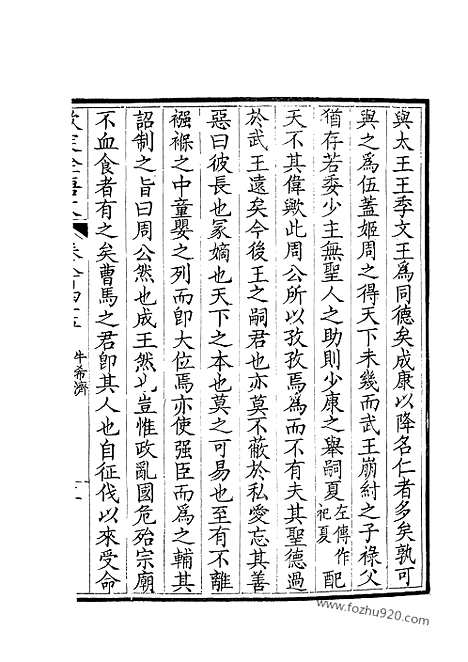 與太王王季文王爲同德矣成康以降名仁者多矣孰可
與之爲伍蓋姬周之得天下未幾而武王崩紂之子祿父
猶存若委少主無聖人之助則少康之舉嗣夏左傳作祀夏配
天不其偉歟此周公所以孜孜焉爲而不有夫其聖德過
於武王遠矣今後王之嗣君也亦莫不蔽於私愛忘其善
惡曰彼長也冢嫡也天下之本也莫之可易也至有不離
襁褓之中童嬰之列而卽大位焉亦使强臣而爲之輔其
詔制之旨曰周公然也成王然也豈惟政亂國危殆宗廟
不血食者有之矣曹馬之君卽其人也自征伐以來受命
欽定全唐文 卷八百四十五 牛希濟 十一
www.fozhu920.com